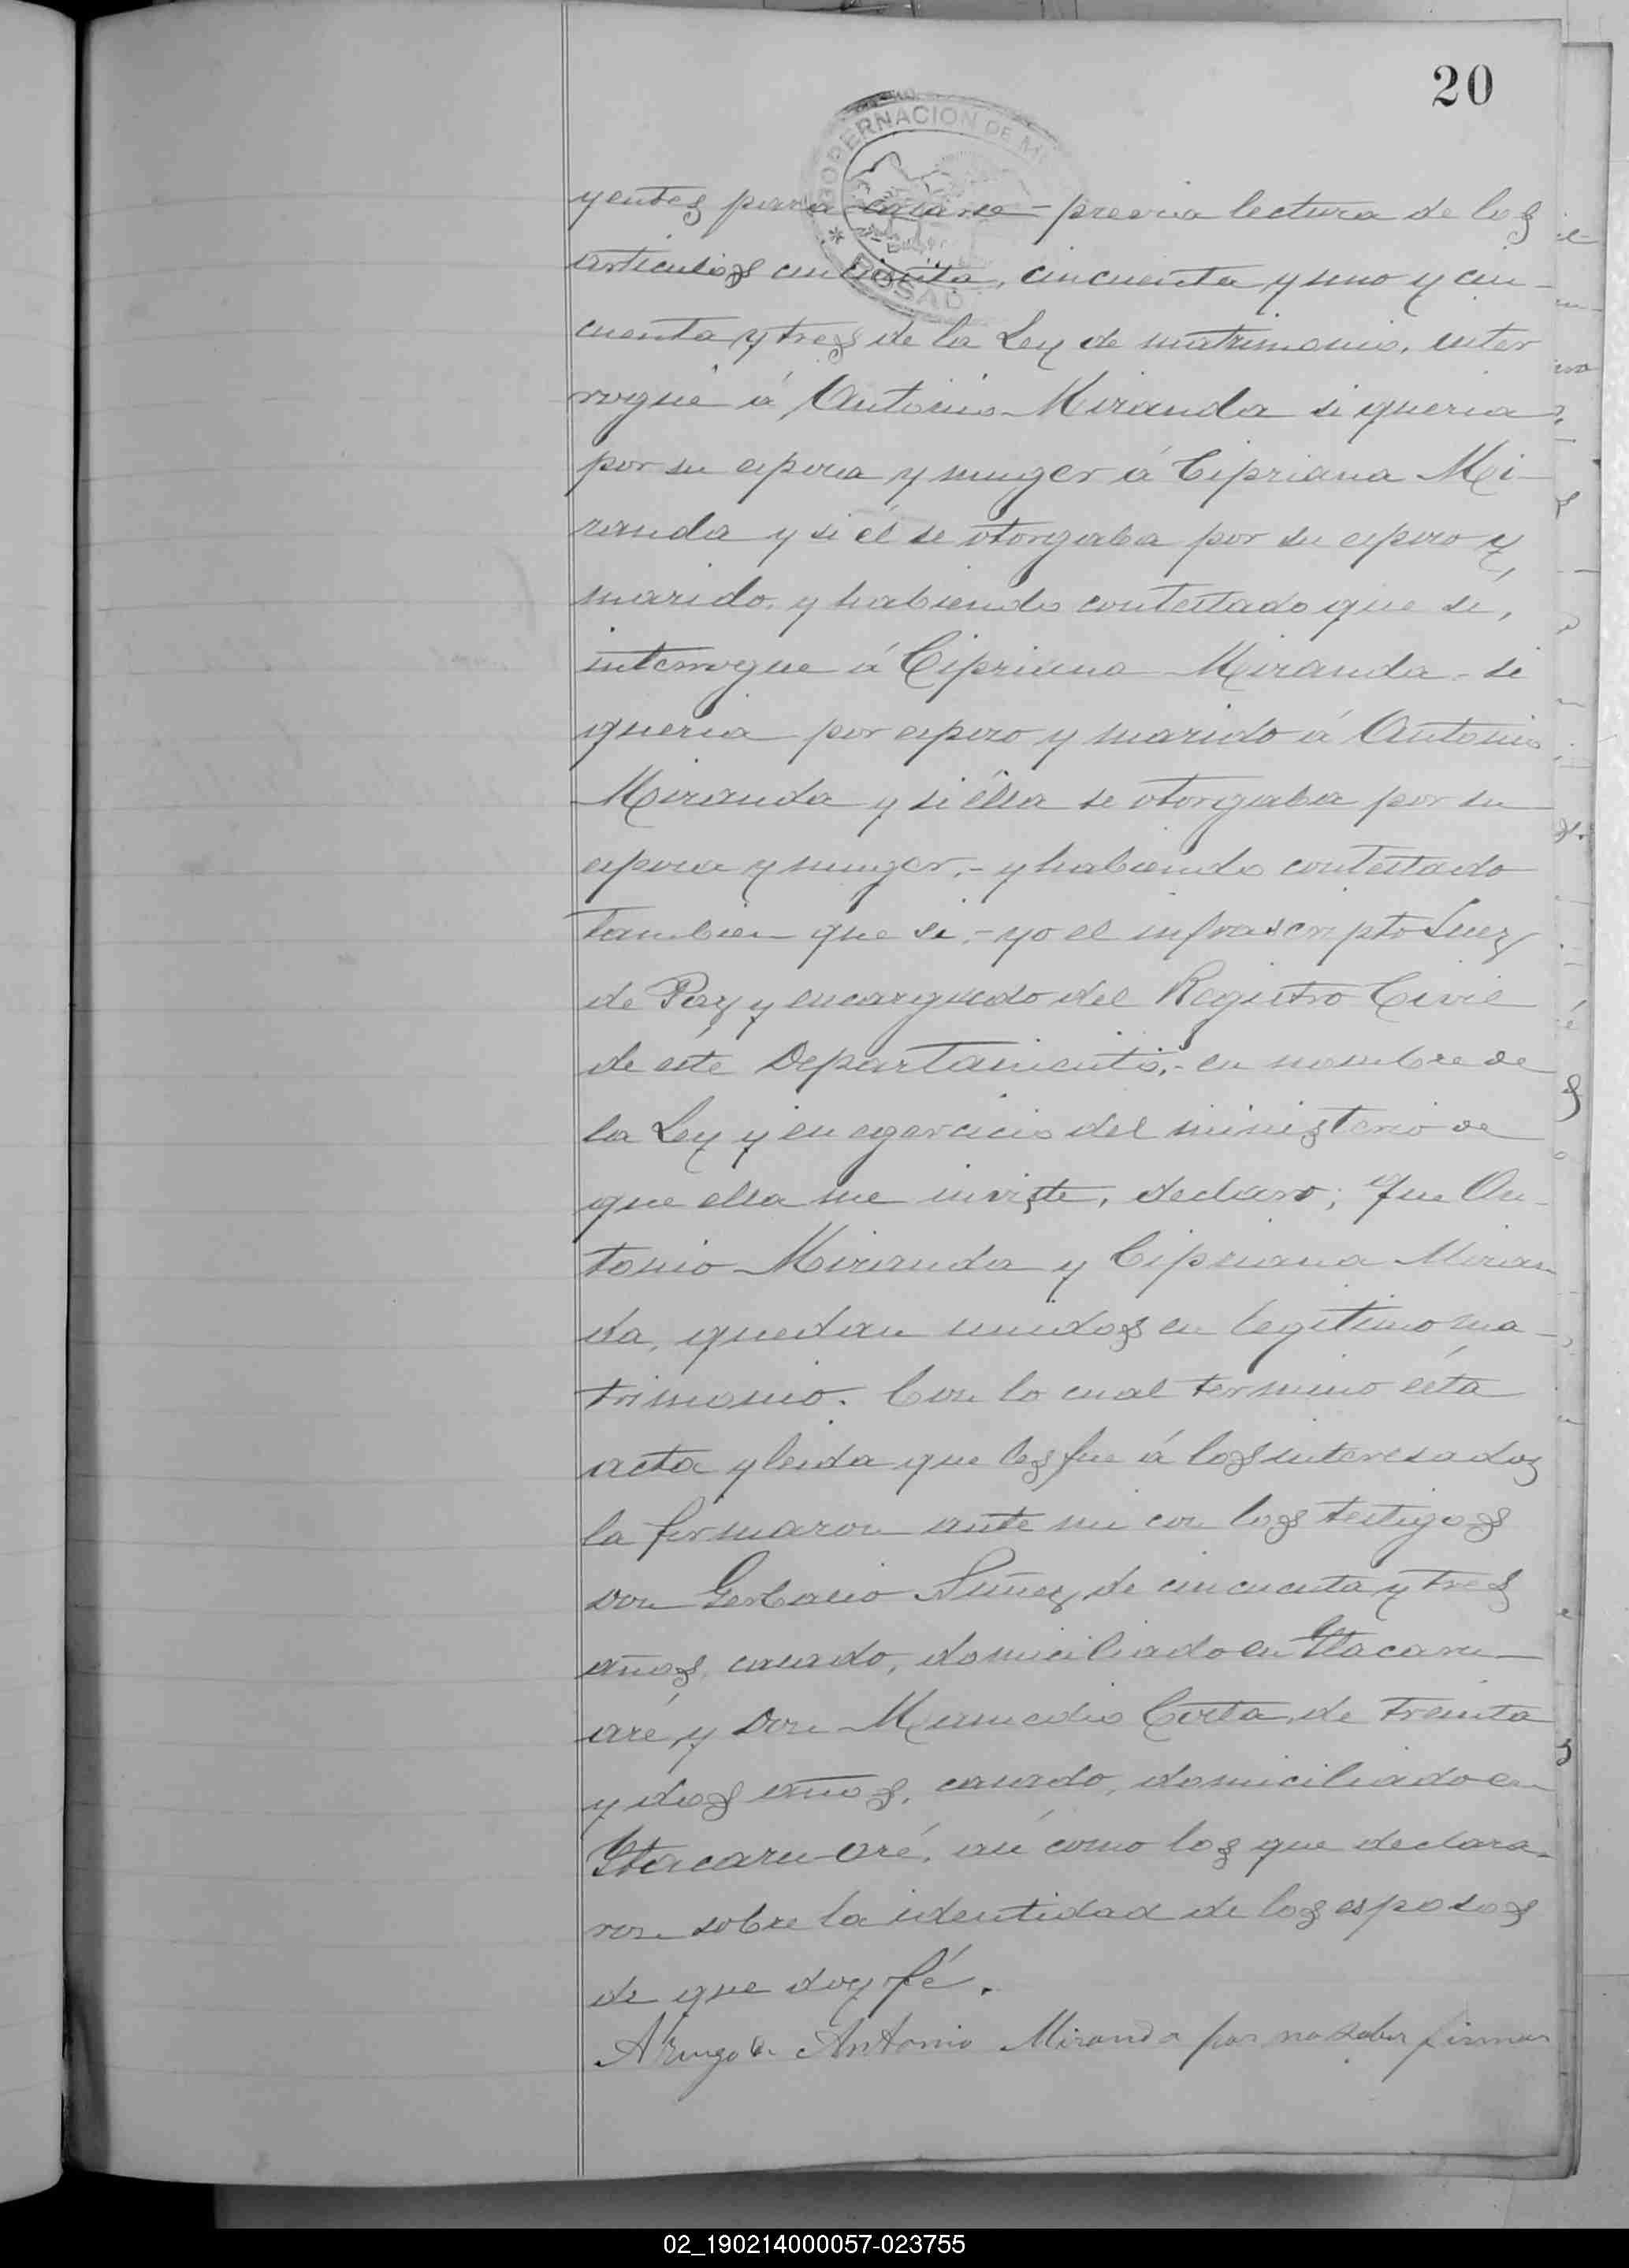 20
GOBERNACION DE MI
POSAD
yentes para casarse - previa lectura de los
articulos cincuenta, cincuenta y uno y cin-
cuenta y tres de la Ley de matrimonio, inter
rogué á Antonio Miranda si queria
por su esposa y muger á Cipriana Mi-
randa y si él se otorgaba por su esposo y
marido, y habiendo contestado que sí,
interrogue á Cipriana Miranda - si
queria por esposo y marido á Antonio
Miranda y si élla se otorgaba por su
esposa y muger, - y habiendo contestado
tambien que si, - yo el infrascripto Juez
de Paz y encargado del Registro Civil
de este Departamento, - en nombre de
la Ley y en egercicio del ministerio de
que ella me inviste, declaro; que An-
tonio Miranda y Cipriana Miran
da, quedan unidos en legitimo ma-
trimonio. Con lo cual termino ésta
acta y leida que les fue á los interesados
la firmaron ante mi con los testigos
Don Gerbacio Nuñez de cincuenta y tres
años, casado, domiciliado en Itacaru-
aré, y Don Mamedio Costa, de treinta
y dos años, casado, domiciliado en
Itacaru-aré, asi como los que declara-
ron sobre la identidad de los esposos
de que doy fé.
A ruego de Antonio Miranda por no saber firmar
02_190214000057-023755